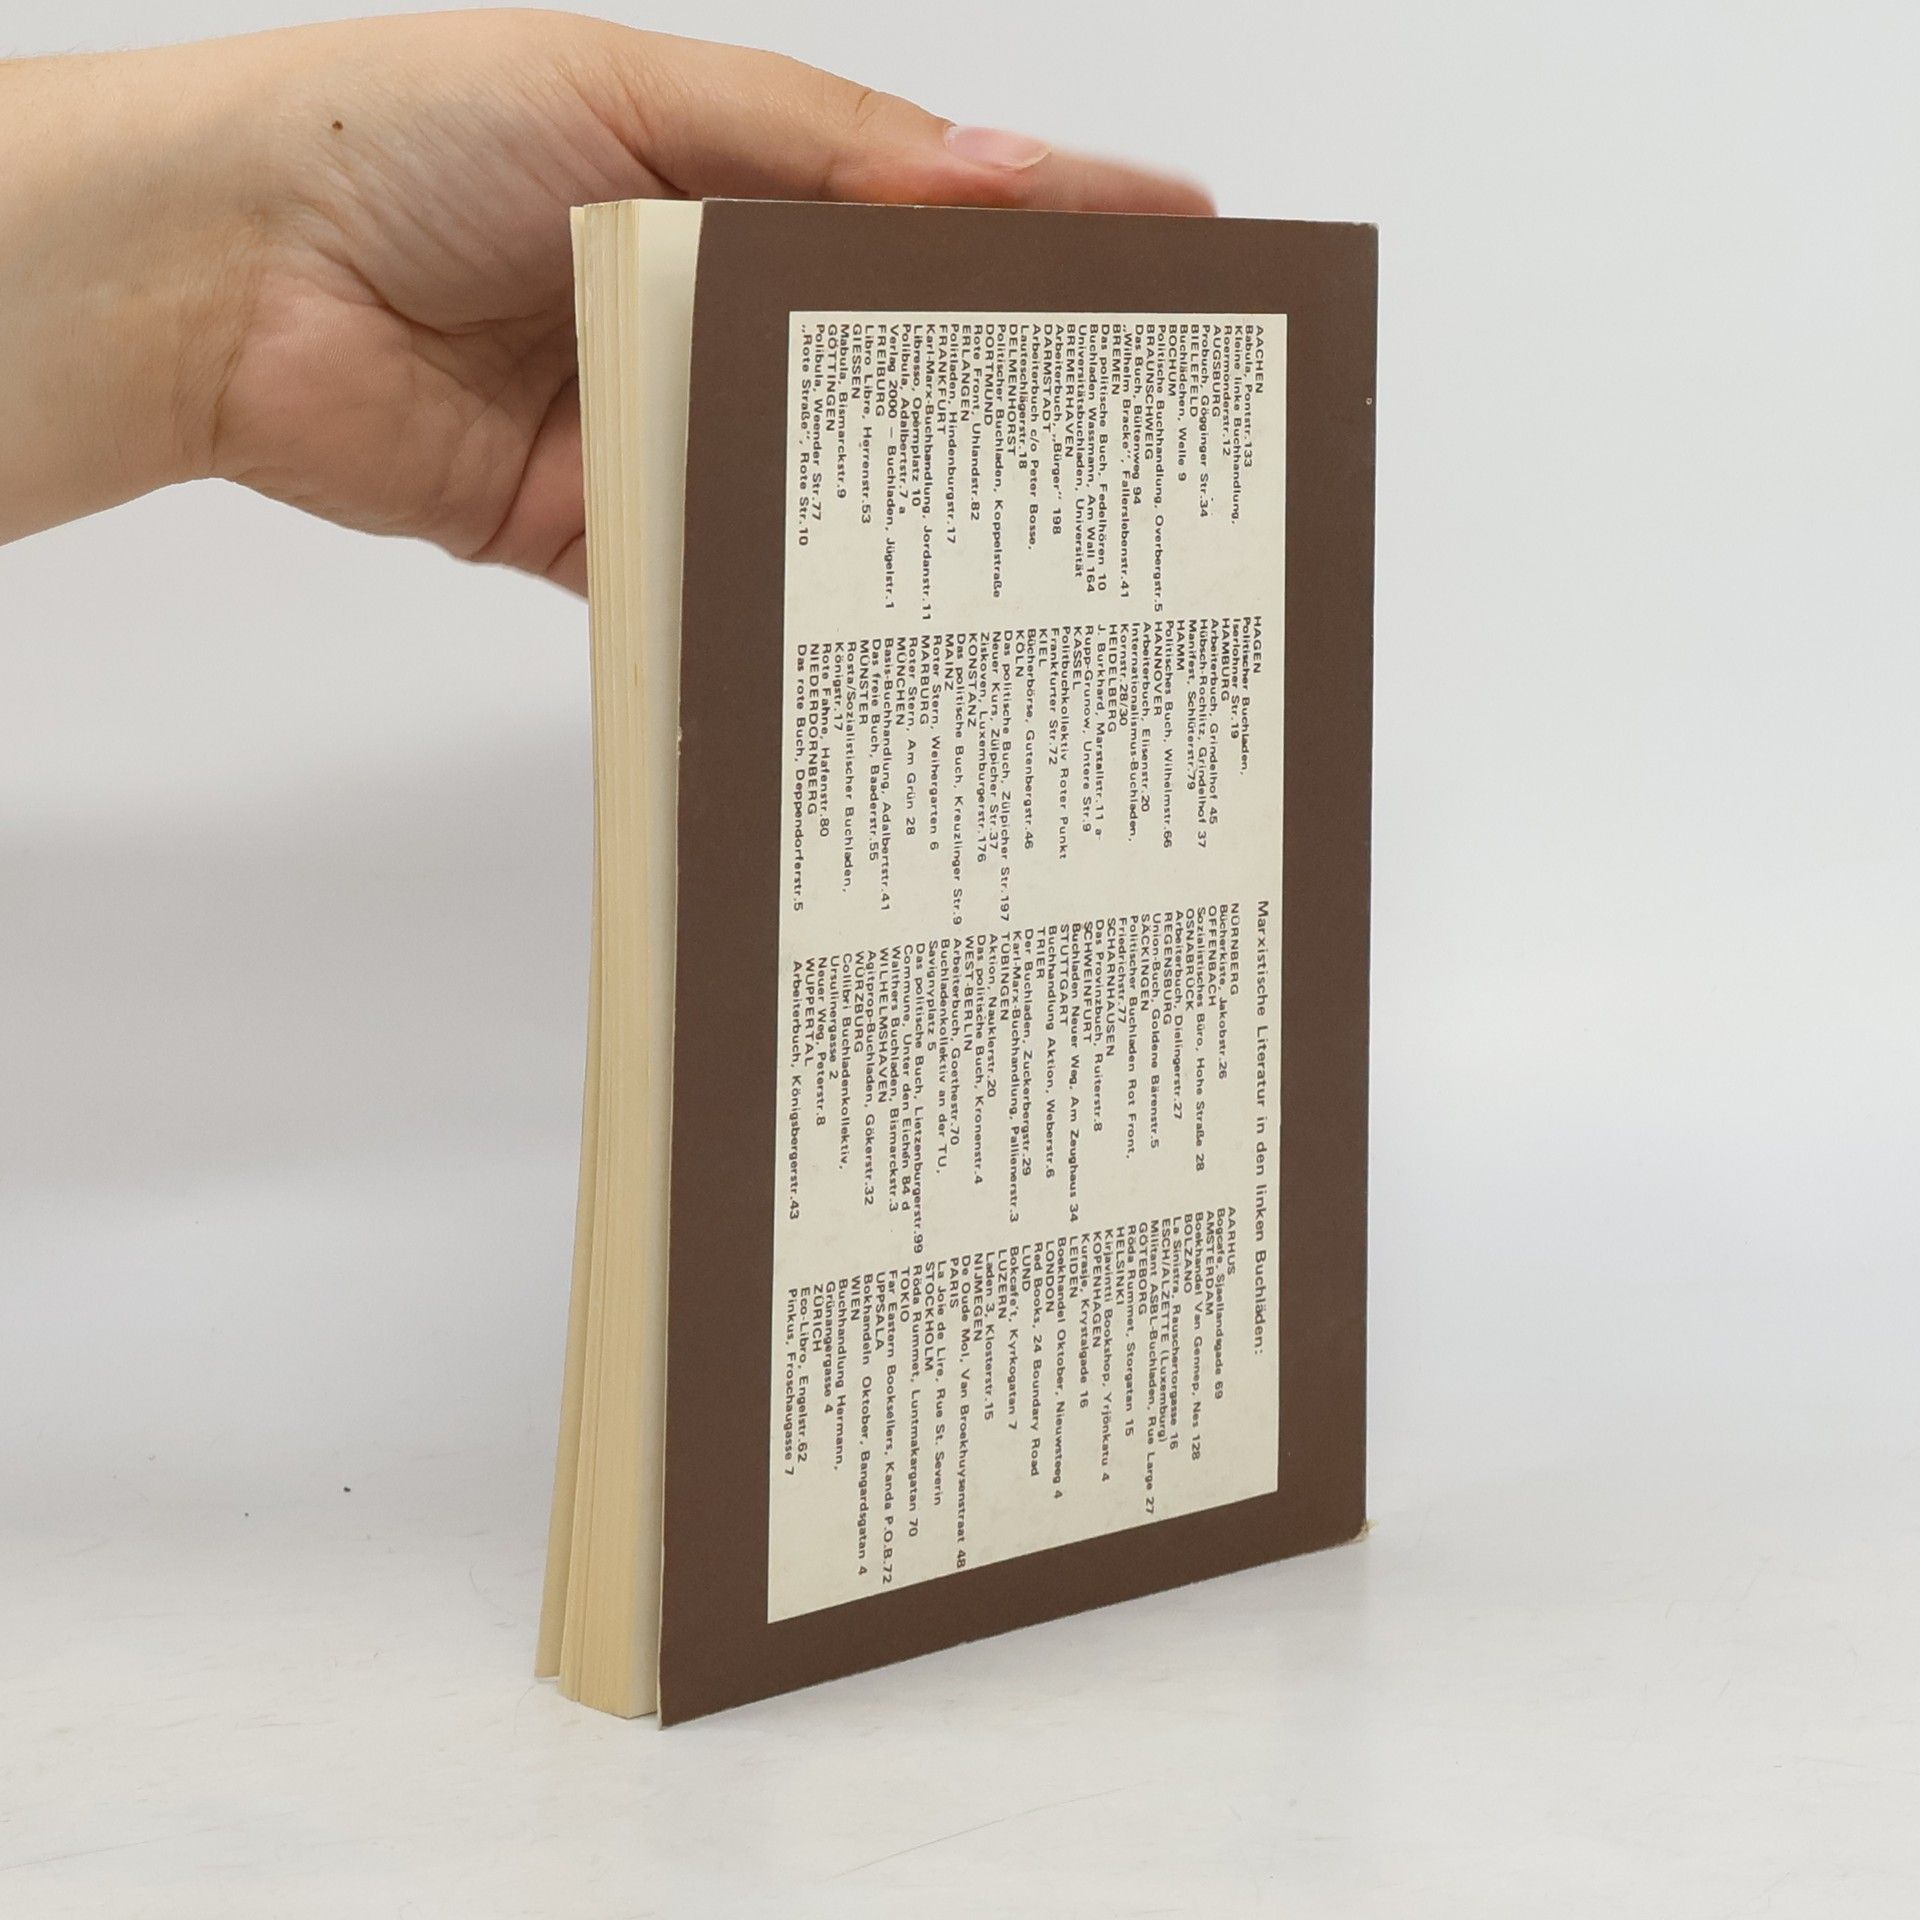 Marxistische Literatur in den linken Buchläden:
AACHEN
Babula, Pontstr.133
Kleine linke Buchhandlung,
Roermonderstr.12
AUGSBURG
Probuch, Gögginger Str.34
BIELEFELD
Buchlädchen, Welle 9
BOCHUM
Politische Buchhandlung, Overbergstr.5
BRAUNSCHWEIG
Das Buch, Bültenweg 94
„Wilhelm Bracke“, Fallerslebenstr.41
BREMEN
Das politische Buch, Fedelhören 10
Buchladen Wassmann, Am Wall 164
Universitätsbuchladen, Universität
BREMERHAVEN
Arbeiterbuch, „Bürger“ 198
DARMSTADT
Arbeiterbuch c/o Peter Bosse,
Lauteschlägerstr.18
DELMENHORST
Politischer Buchladen, Koppelstraße
DORTMUND
Rote Front, Uhlandstr.82
ERLANGEN
Politladen, Hindenburgstr.17
FRANKFURT
Karl-Marx-Buchhandlung, Jordanstr.11
Libresso, Opernplatz 10
Polibula, Adalbertstr.7 a
Verlag 2000 – Buchladen, Jügelstr.1
FREIBURG
Libro Libre, Herrenstr.53
GIESSEN
Mabula, Bismarckstr.9
GÖTTINGEN
Polibula, Weender Str.77
„Rote Straße“, Rote Str.10
HAGEN
Politischer Buchladen,
Iserlohner Str.19
HAMBURG
Arbeiterbuch, Grindelhof 45
Hübsch-Rochlitz, Grindelhof 37
Manifest, Schlüterstr.79
HAMM
Politisches Buch, Wilhelmstr.66
HANNOVER
Arbeiterbuch, Elisenstr.20
Internationalismus-Buchladen,
Kornstr.28/30
HEIDELBERG
J. Burkhard, Marstallstr.11 a
Rupp-Grunow, Untere Str.9
KASSEL
Politbuchkollektiv Roter Punkt
Frankfurter Str.72
KIEL
Bücherbörse, Gutenbergstr.46
KÖLN
Das politische Buch, Zülpicher Str.197
Neuer Kurs, Zülpicher Str.37
Ziskoven, Luxemburgerstr.176
KONSTANZ
Das politische Buch, Kreuzlinger Str.9
MAINZ
Roter Stern, Weihergarten 6
MARBURG
Roter Stern, Am Grün 28
MÜNCHEN
Basis-Buchhandlung, Adalbertstr.41
Das freie Buch, Baaderstr.55
MÜNSTER
Rosta/Sozialistischer Buchladen,
Königstr.17
Rote Fahne, Hafenstr.80
NIEDERDORNBERG
Das rote Buch, Deppendorferstr.5
NÜRNBERG
Bücherkiste, Jakobstr.26
OFFENBACH
Sozialistisches Büro, Hohe Straße 28
OSNABRÜCK
Arbeiterbuch, Dielingerstr.27
REGENSBURG
Union-Buch, Goldene Bärenstr.5
SÄCKINGEN
Politischer Buchladen Rot Front,
Friedrichstr.77
SCHARNHAUSEN
Das Provinzbuch, Ruiterstr.8
SCHWEINFURT
Buchladen Neuer Weg, Am Zeughaus 34
STUTTGART
Buchhandlung Aktion, Weberstr.6
TRIER
Der Buchladen, Zuckerbergstr.29
Karl-Marx-Buchhandlung, Pallienerstr.3
TÜBINGEN
Aktion, Nauklerstr.20
Das politische Buch, Kronenstr.4
WEST-BERLIN
Arbeiterbuch, Goethestr.70
Buchladenkollektiv an der TU,
Savignyplatz 5
Das politische Buch, Lietzenburgerstr.99
Commune, Unter den Eichen 84 d
Walthers Buchladen, Bismarckstr.3
WILHELMSHAVEN
Agitprop-Buchladen, Gökerstr.32
WÜRZBURG
Collibri Buchladenkollektiv,
Ursulinergasse 2
Neuer Weg, Peterstr.8
WUPPERTAL
Arbeiterbuch, Königsbergerstr.43
AARHUS
Bogcafe, Sjaellandsgade 69
AMSTERDAM
Boekhandel Van Gennep, Nes 128
BOLZANO
La Sinistra, Rauschertorgasse 16
ESCH/ALZETTE (Luxemburg)
Militant ASBL-Buchladen, Rue Large 27
GÖTEBORG
Röda Rummet, Storgatan 15
HELSINKI
Kirjavintti Bookshop, Yrjönkatu 4
KOPENHAGEN
Kurasje, Krystalgade 16
LEIDEN
Boekhandel Oktober, Nieuwsteeg 4
LONDON
Red Books, 24 Boundary Road
LUND
Bokcafe't, Kyrkogatan 7
LUZERN
Laden 3, Klosterstr.15
NIJMEGEN
De Oude Mol, Van Broekhuysenstraat 48
PARIS
La Joie de Lire, Rue St. Severin
STOCKHOLM
Röda Rummet, Luntmakargatan 70
TOKIO
Far Eastern Booksellers, Kanda P.O.B.72
UPPSALA
Bokhandeln Oktober, Bangardsgatan 4
WIEN
Buchhandlung Hermann,
Grünangergasse 4
ZÜRICH
Eco-Libro, Engelstr.62
Pinkus, Froschaugasse 7